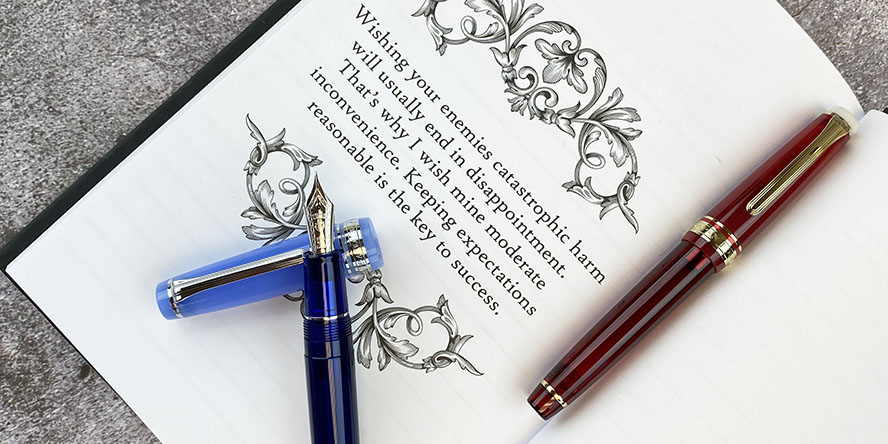 Wishing your enemies catastrophic harm
will usually end in disappointment.
That's why I wish mine moderate
inconvenience. Keeping expectations
reasonable is the key to success.